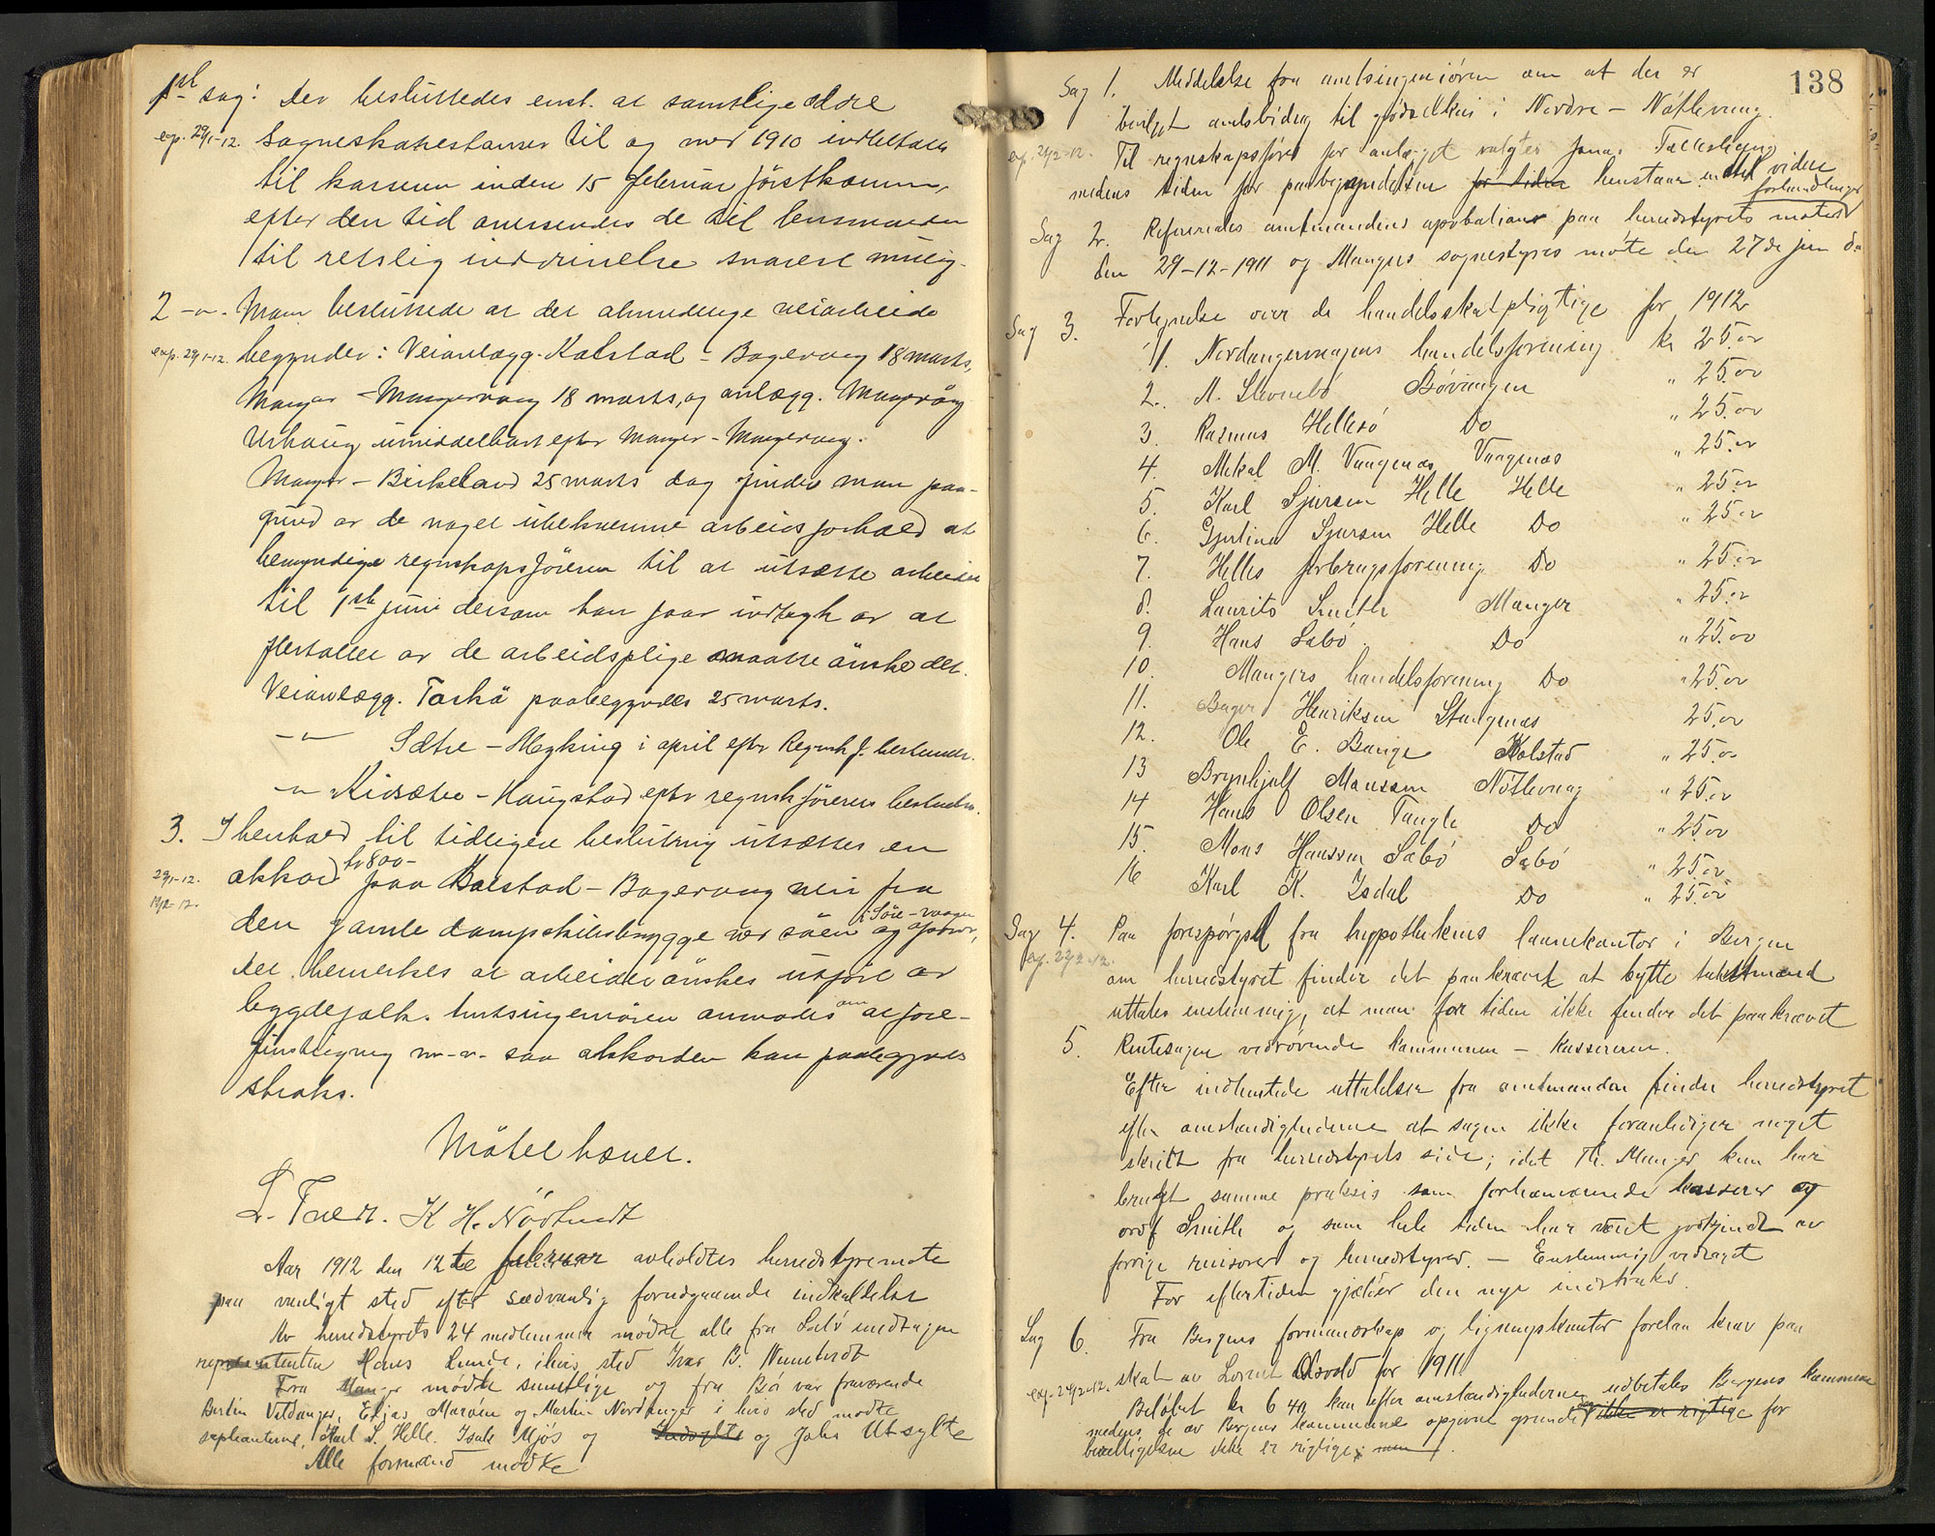 1ste sag: Dev besluttedes enst. at samtlige ældre
exp. 29/1-12. Sogneskatrestanser til og med 1910 indbetales
til kassereren inden 15 februar førstkomm,
efter den tid oversendes de til lensmanden
til retslig inddrivelse snarest mulig.
2 -"- Man besluttede at det almindelige veiarbeide
exp. 29/1-12. begynder: Veianlægg. Kolstad - Bogevaag 18 marts,
Manger - Mangervaag 18 marts, og anlægg. Mangvåg
Urhaug umiddelbart efter Manger - Mangervaag.
Manger - Birkeland 25 marts dog finder man paa-
grund av de noget ubekvemme arbeidsforhold at
bemyndige regnskapsføreren til at utsætte arbeidet
til 1ste juni dersom han faar indtryk av at
flertallet av de arbeidspligtige maatte ønske det.
Veianlægg. Toskä paabegyndes 25 marts.
-"- Sætre - Myking i april efter Regnsk.f. bestemm.
-"- Kidsætre - Haugstad efter regnskføreren bestem.
3. I henhold til tidligere beslutning utsættes en
29/1-12. akkord kr 800- paa Kolstad - Bogevaag vei fra
13/2-12. den gamle dampskibsbrygge ved søen i Søre-vaagen og opover,
det bemerkes at arbeidet ønskes utført av
bygdefolk. Amtsingeniøren anmodes om at fore-
finstigning m-v. saa akkorden kan paabegyndes
straks.
Mötet hævet.
L. Tveit. K H. Nödtvedt
Aar 1912 den 12te februar avholdtes herredstyremøte
paa vanligt sted efter sædvanlig forudgaaende indkaldelse
Av herredstyrets 24 medlemmer mødte alle fra Sæbö undtagen
represententen Hans Lunde, i hvis sted Ivar B. Nundtvedt
Fra Manger mødte samtlige og fra Bø var fraværende
Bertin Valdanger, Elias Marøen og Martin Nordanger i hvis sted mødte
suplianterne, Karl S. Helle. Isak Mjøs og og Johs Utsylte
Alle formænd mødte
138
Sag 1. Meddelelse fra amtsingeniøren om at der er
bevilget amtsbidrag til godselskai i Nordre - Nøtlevaag.
exp. 24/2-12. Til regnskapsfører for anlægget valgtes Jonas Tællesheiung
medens tiden for paabegyndelsen for tiden henstaar indtil videre
forhandlinger
Sag 2. Refereredes amtmandens aprobation paa herredstyrets møte
den 29-12-1911 og Mangers sognestyres møte den 27de jan d.a
Sag 3. Fortegnelse over de handelsskatpligtige for 1912
1. Nordangervaagens handelsforening kr 25.00
2. A. Skornebø Bøvaagen " 25.00
3. Rasmus Hellesø Do " 25.00
4. Mikal M. Vaagenæs Vaagenæs " 25.00
5. Karl Sjursen Helle Helle " 25.00
6. Gjertine Sjursen Helle Do " 25.00
7. Helles forbrugsforening Do " 25.00
8. Laurits Smith Manger " 25.00
9. Hans Sæbø Do " 25.00
10. Mangers handelsforening Do " 25.00
11. Berger Henriksen Stangenæs 25.00
12. Ole E. Bauge Kolstad " 25.00
13 Brynhjulf Monssen Nøtlevaag " 25.00
14 Hans Olsen Taugle Do " 25.00
15. Mons Hanssen Sæbø Sæbø " 25.00
16 Karl K. Isdal Do " 25.00
Sag 4. Paa forespørgsel fra hypothekens laanekontor i Bergen
exp. 23/2-12. om herredstyret finder det paakrævet at bytte takstmænd
uttales enstemmig, at man for tiden ikke finder det paakrævet
5. Rentesagen vedrørende kommunen - kassereren.
Efter indhentede uttalelser fra amtmanden finder herredstyret
efter omstændighederne at sagen ikke foranlediger noget
skritt fra herredstyrets side; idet Th. Manger kun har
brugt samme praksis som forhenværende kasserer og
ordf Smith og som hele tiden har været godkjendt av
forrige revisorer og herredstyrer. - Enstemmig vedtaget
For eftertiden gjælder den nye instruks.
Sag 6. Fra Bergens formandskap og ligningskontor forelaa krav paa
exp. 24/2-12. skat av Lorent Olsvold for 1911
Beløbet kr 6.40 kan efter omstændighederne udbetales Bergens kommune
medens de av Bergens kommune opgivne grunde ikke er rigtige for
bevilligelsen ikke er rigtige; men